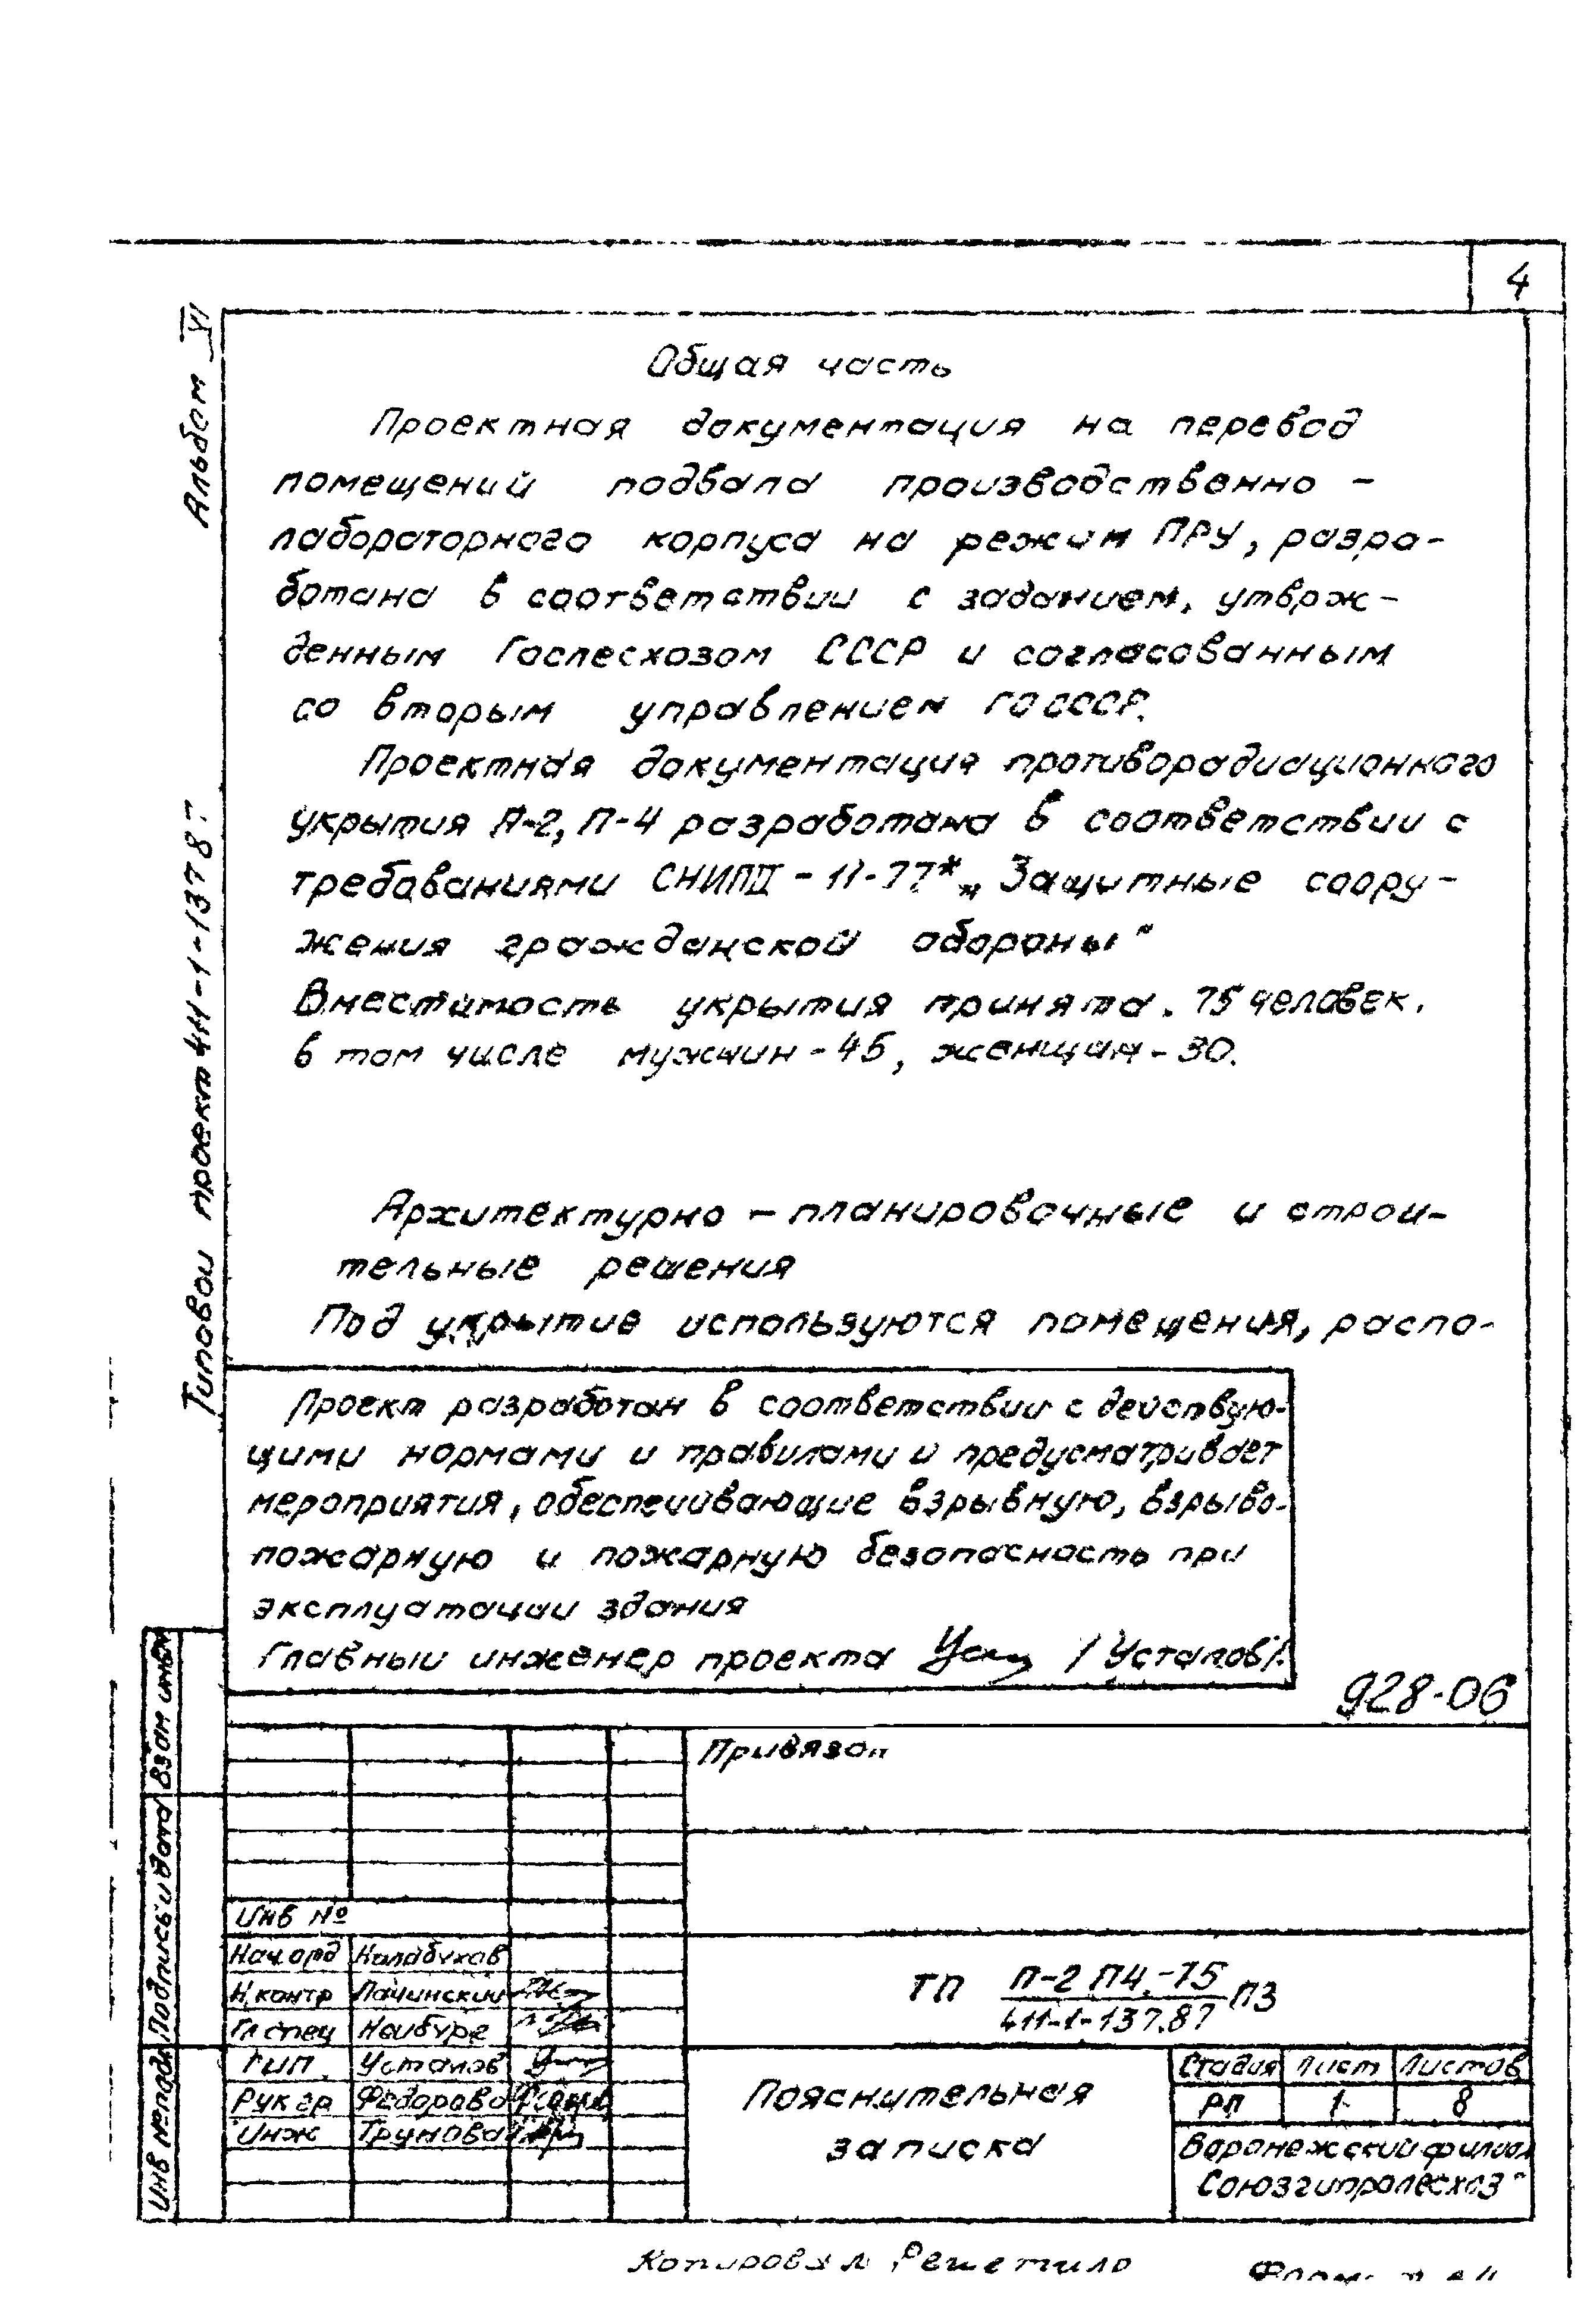 4
Альбом VI
Типовой проект 411-1-137 87
Общая часть
Проектная документация на перевод
помещений подвала производственно -
лабораторного корпуса на режим ПРУ, разра-
ботана в соответствии с заданием, утверж-
денным Гослесхозом СССР и согласованным
со вторым управлением ГО СССР.
Проектная документация противорадиационного
укрытия П-2, П-4 разработана в соответствии с
требованиями СНИП II - 11-77* „Защитные соору-
жения гражданской обороны"
Вместимость укрытия принята . 75 человек.
в том числе мужчин - 45, женщин - 30.
Архитектурно - планировочные и строи-
тельные решения
Под укрытие используются помещения, распо-
Проект разработан в соответствии с действую-
щими нормами и правилами и предусматривает
мероприятия, обеспечивающие взрывную, взрыво-
пожарную и пожарную безопасность при
эксплуатации здания
Главный инженер проекта / Усталов /.
928-06
Привязан
Инв №
Нач. отд Калабухов
Н. контр Пачинский
Гл спец Неибуре
ГИП. Усталов
Рук гр Федорова
Инж Трунова
ТП П-2 П4.-75 ПЗ
411-1-137.87
Пояснительная
записка
Стадия Лист Листов
РП 1 8
Воронежский филиал
Союзгипролесхоз"
Взам инв№
Подпись и дата
Инв № подл
Копировал Решетило